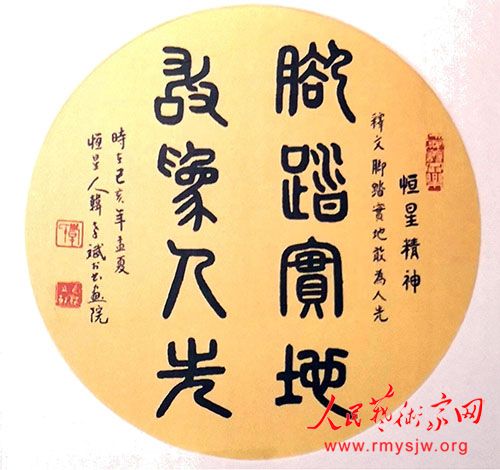 恒星精神
釋文脚踏實地敢為人先
腳踏實地
敢為人先
時于己亥年孟夏
恒星人韓子斌書畫院
人民藝術家网
www.rmysjw.org